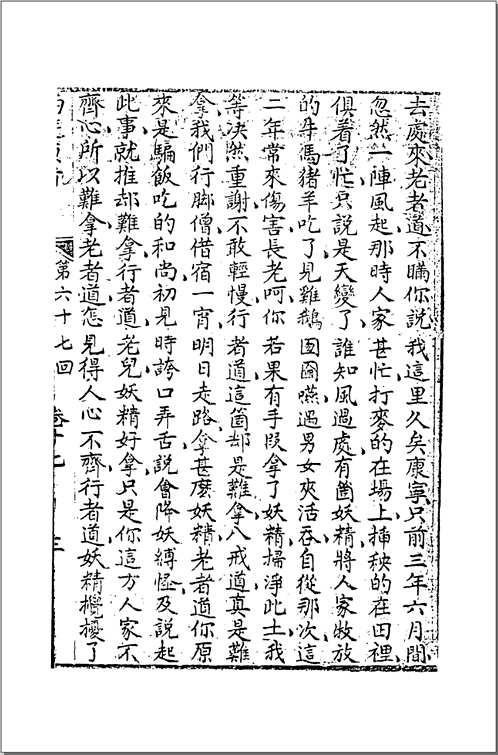 去處來老者道不瞞你說我這里久矣康寧只前三年六月間
忽然一陣風起那時人家甚忙打麥的在場上揷秧的在田裡
俱着了忙只說是天變了誰知風過處有箇妖精將人家牧放
的牛馬猪羊吃了見雞鵝囫圇嚥遇男女夾活吞自從那次這
二年常來傷害長老呵你若果有手段拿了妖精掃淨此土我
等决然重謝不敢輕慢行者道這箇却是難拿八戒道真是難
拿我們行脚僧借宿一宵明日走路拿甚麽妖精老者道你原
來是騙飯吃的和尚初見時誇口弄舌說會降妖縛怪及說起
此事就推却難拿行者道老兒妖精好拿只是你這方人家不
齊心所以難拿老者道怎見得人心不齊行者道妖精攪擾了
第六十七回